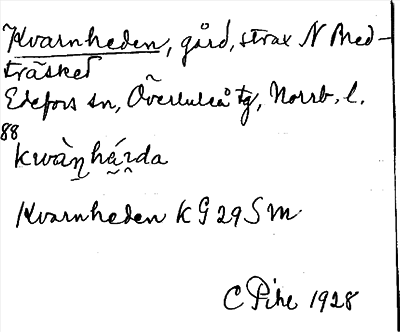 Kvarnheden, gård, strax N Bred-
träsket
Edefors sn, Överluleå tg, Norrb. l.
88
kwàn̠hä́ṛda
Kvarnheden KG 29 SM
C Pihl 1928